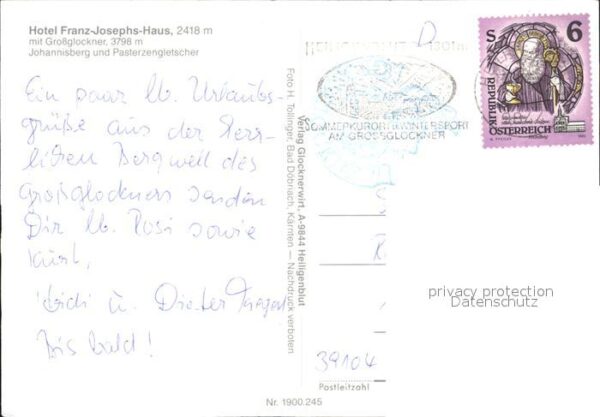 Hotel Franz-Josephs-Haus, 2418 m
mit Großglockner, 3798 m
Johannisberg und Pasterzengletscher
Ein paar lb. Urlaubs-
grüße aus der herr-
lichen Bergwelt des
Großglockners senden
Dir lb. Rosi sowie
Kurt,
u. Dieter
Bis bald!
Verlag Glocknerwirt, A-9844 Heiligenblut
Foto H. Tollinger, Bad Döbriach, Kärnten — Nachdruck verboten
SOMMERKURORT WINTERSPORT
AM GROSSGLOCKNER
S 6
REPUBLIK
ÖSTERREICH
privacy protection
Datenschutz
39104
Postleitzahl
Nr. 1900.245